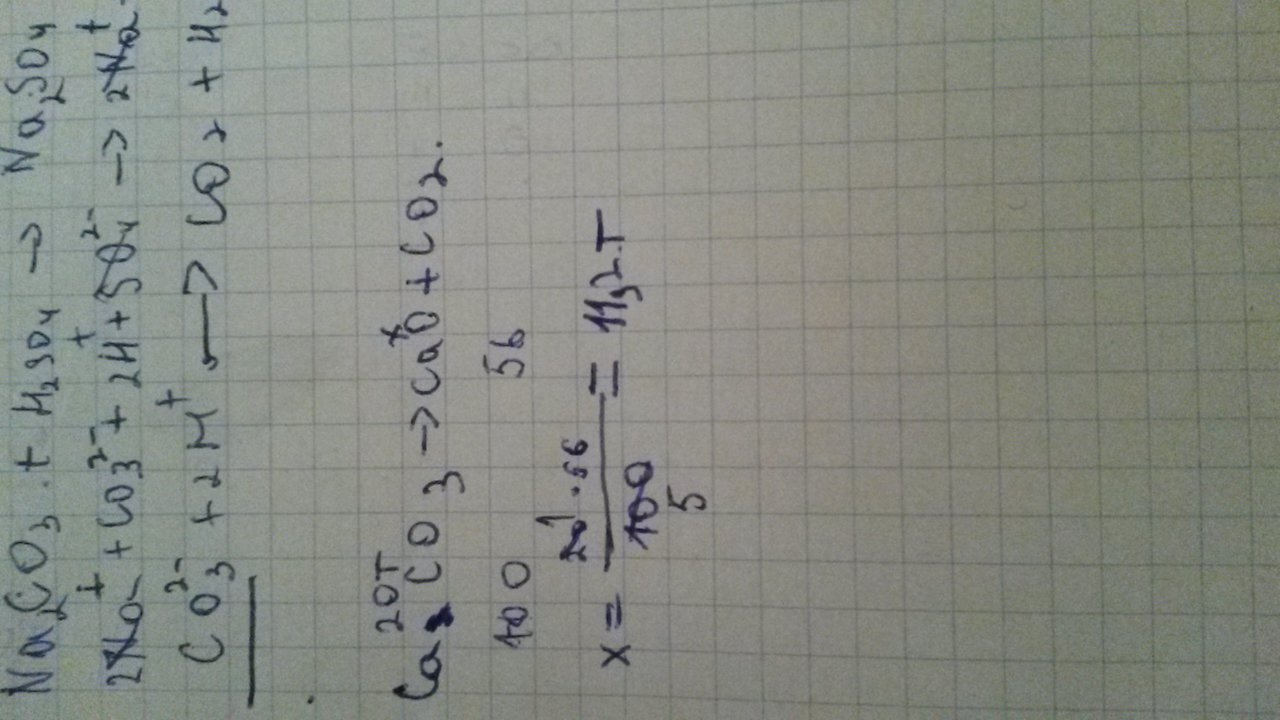 Na₂CO₃ + H₂SO₄ → Na₂SO₄
2Na⁺ + CO₃²⁻ + 2H⁺ + SO₄²⁻ → 2Na⁺
CO₃²⁻ + 2H⁺ → CO₂ + H₂
20т x
CaCO₃ → CaO + CO₂.
100 56
x = 20¹·56 / 100 5 = 11,2т